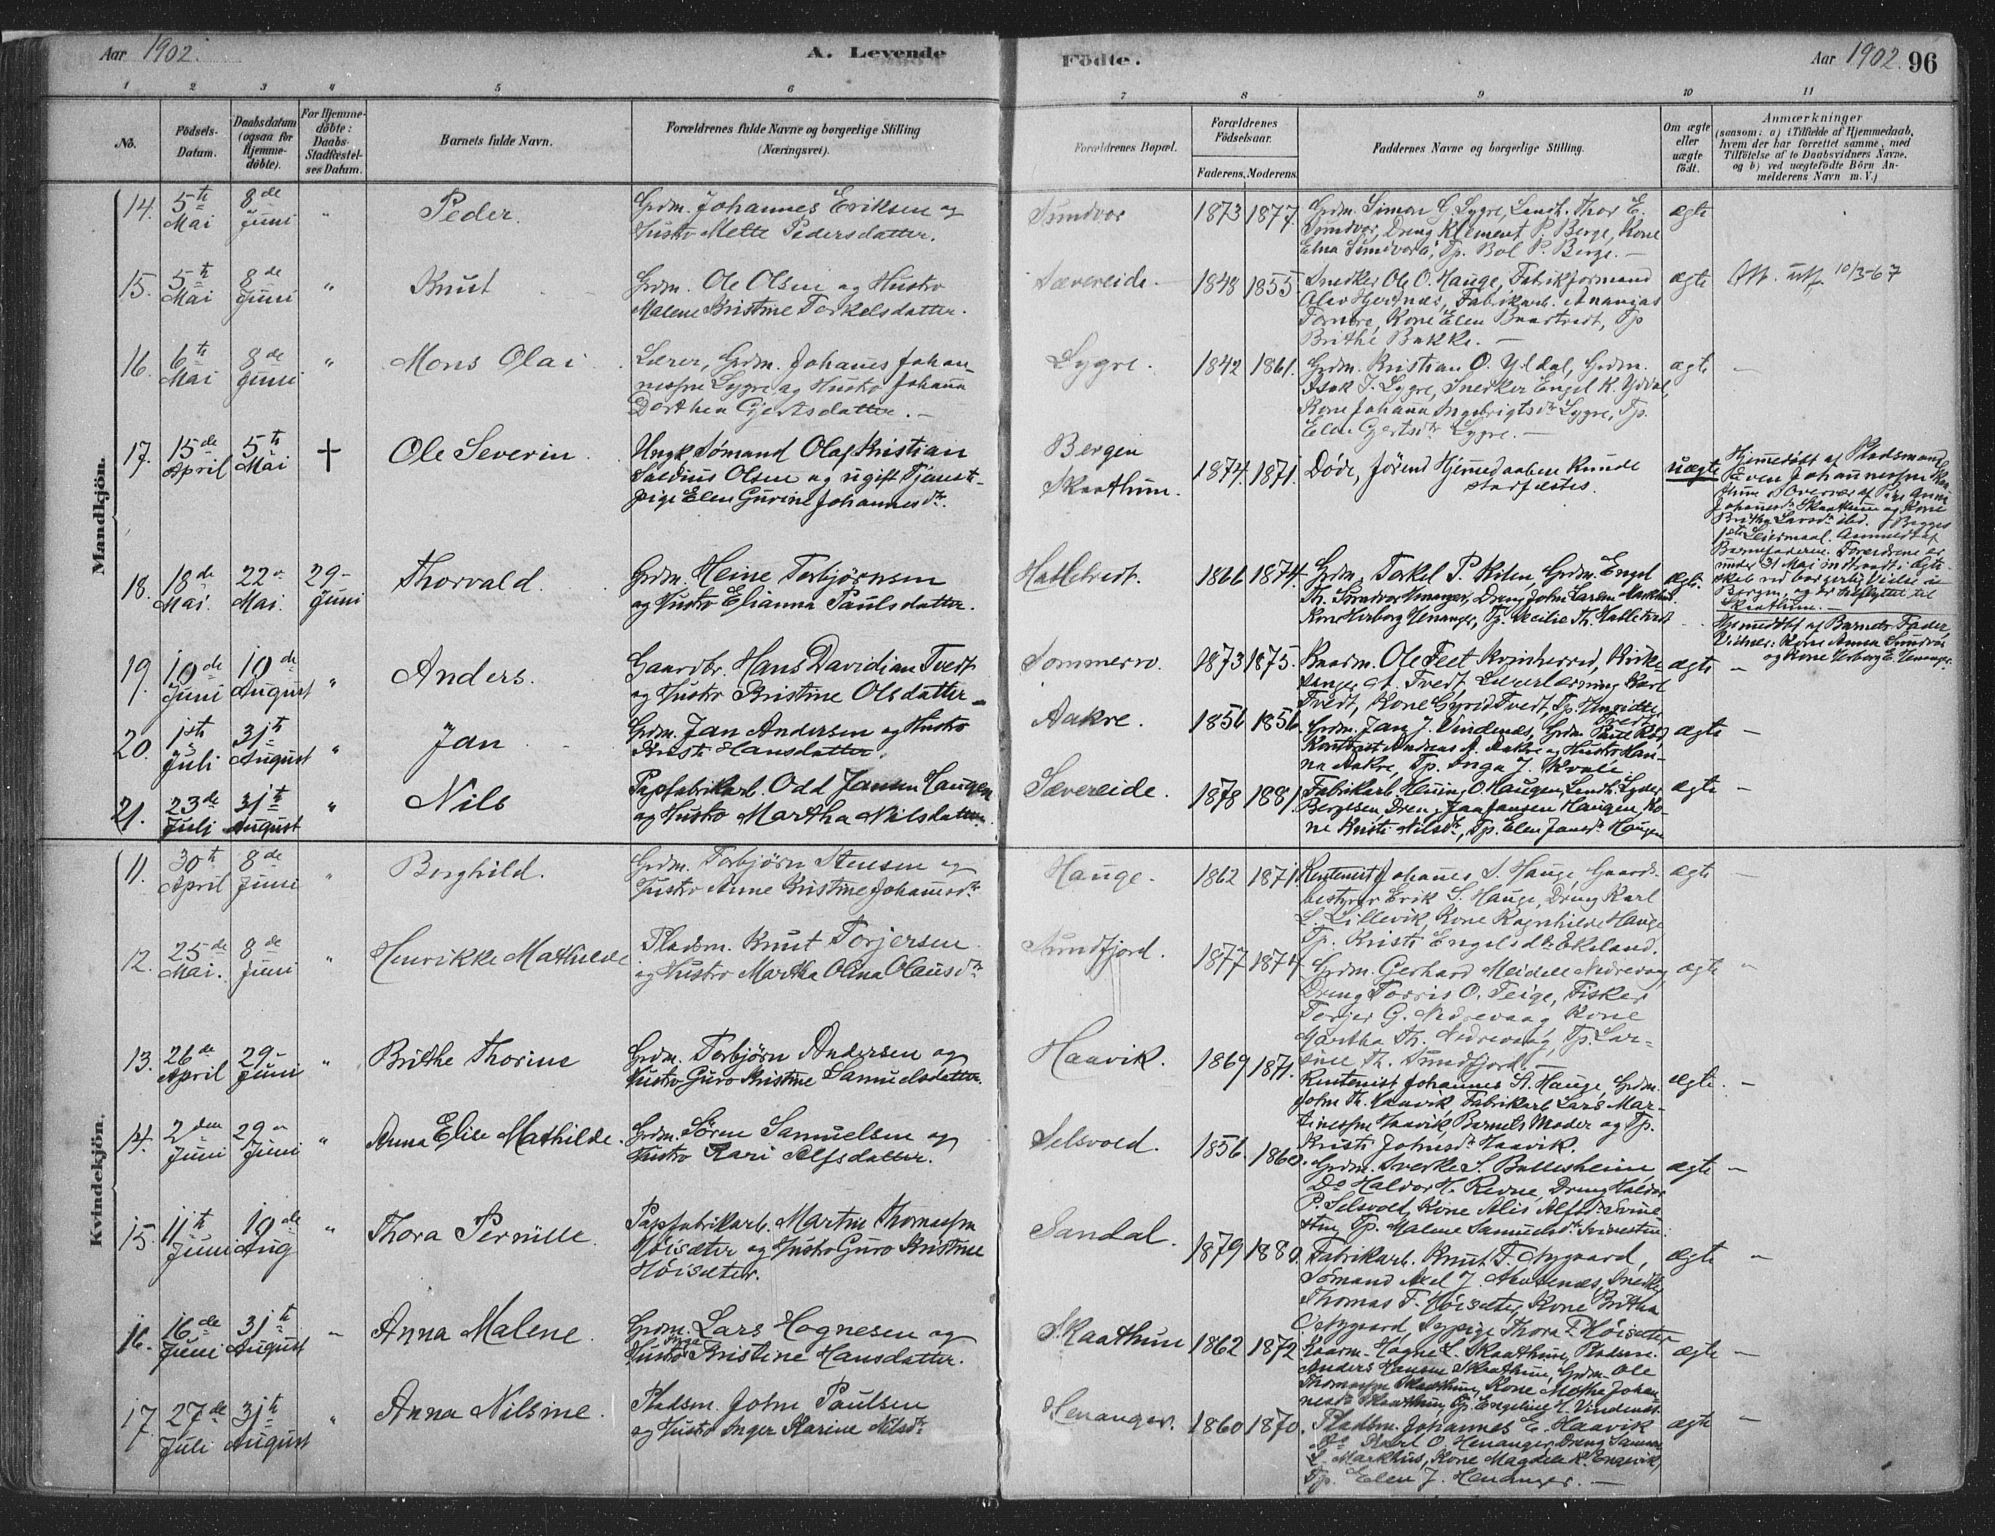 Aar 1902.
A. Levende
Födte.
Aar 1902. 96
1 2 3 4 5 6 7 8 9 10 11
No.
Födsels-
Datum.
Daabsdatum
(ogsaa for
Hjemme-
döbte).
For Hjemme-
döbte:
Daabs-
Stadfæstel-
ses Datum.
Barnets fulde Navn.
Forældrenes fulde Navne og borgerlige Stilling
(Næringsvei).
Forældrenes Bopæl.
Forældrenes
Födselsaar.
Faderens. Moderens.
Faddernes Navne og borgerlige Stilling.
Om ægte
eller
uægte
födt.
Anmærkninger
(saasom: a) i Tilfælde af Hjemmedaab,
hvem der har forrettet samme, med
Tilföielse af to Daabsvidners Navne,
og b) ved uægtefödte Börn An-
melderens Navn m. V.)
Mandkjön.
14. 5th Mai 8de Juni " Peder.
Grdm. Johannes Eriksen og
Hustro Mette Pedersdatter.
Sundvor 1873 1877.
Grdm. Simon G. Lygre, Landh. Thor E.
Sundvor, Dreng Klement P. Berge, Kone
Elna Sundvor, Tp. Bol P. Berge. —
ægte
15. 5th Mai 8de Juni " Knut
Grdm. Ole Olsen og Hustro
Malene Kristine Torkelsdatter.
Sævereide. 1848 1855.
Snedker Ole O. Hauge, Fabrikformand
Olav Gjertnæs, Fabrikarb. Ananias
Kone Elen Baartvedt, Tp
Brithe Bakke. —
ægte
Att. utf. 10/3-67
16. 6th Mai 8de Juni " Mons Olai
Lærer, Grdm. Johanes Johan-
nessen Lygre og Hustro Johana
Dorthea Gjertsdatter. —
Lygre. 1842 1861.
Grdm. Kristian O. Yldal, Grdm.
Isak J. Lygre, Snedker Engel K. Yddal,
Kone Johana Ingebrigtsdtr Lygre, Tp.
Elen Gjertsdtr Lygre. —
ægte —
17. 15de April 5th Mai † Ole Severin
Ungk Sømand Olaf Kristian
Olsen og ugift Tjeneste-
pige Elen Gurine Johannesdtr.
Bergen
Skaathum. 1874. 1871.
Døde, førend Hjemmedaaben kunde
stadfæstes.
uægte
Hjemmedöbt af Pladsmand
Johannessen Skaa-
thum. Overvær af Pige Anna
Johannesdtr Skaathum og Kone
Brithe Larsdtr ibd. Begges
1ste Leiermaal. Anmeldt af
Barnefaderen. Forældrene er
under 31 Mai indtraadt i ægte-
skab ved borgerlig Vielse i
Bergen, og er tilflyttet til
Skaathum. —
18. 18de Mai. 22 Mai. 29- Juni Thorvald.
Grdm. Heine Torbjørnsen
og Hustro Elianna Paulsdatter.
Hatletvedt. 1866 1874.
Grdm. Torkel P. Kilen, Grdm. Engel
Th. Sundvor Henanger, Dreng John Larsen Markhus
Kone Herborg Henanger, Tp. Cecilie Th. Hatletvedt
ægte.
Hjemmedöbt af Barnets Fader
Vidner: Kone Anna Sundvor
og Kone Herborg E. Henanger.
19. 10de Juni 10de August " Anders.
Gaardbr. Hans Davidian Tvedt
og Hustro Kristine Olsdatter —
Sommervo. 1873 1875.
Ole Feet Kvinherred, Kirke
sanger A. Tvedt, Karl
Tvedt, Kone Gyrid Tvedt, Tp.
Tvedt.
ægte —
20. 1ste Juli 31th August " Jan
Grdm. Jan Andersen og Hustro
Kristi Hansdatter.
Aakre. 1856 1856.
Grdm. Jan J. Vindenes, Grdm.
Andreas A. Aakre og Hustro Han-
na Aakre, Tp. Inga J. Kvale
ægte —
21. 23de Juli 31th August " Nils
Papfabrikarb. Odd Jansen Haugen
og Hustro Martha Nilsdatter.
Sævereide. 1878 1881.
Fabrikarb. Hening O. Haugen, Landh. Lyder
Bergesen, Dreng Jan Jansen Haugen, Ko-
ne Kristi Nilsdtr, Tp. Elen Jansdtr Haugen
ægte —
Kvindekjön.
11. 30th April 8de Juni " Borghild.
Grdm. Torbjørn Stensen og
Hustro Anne Kristine Johannesdtr.
Hauge. 1862 1871.
Rentenist Johanes S. Hauge, Gaards-
bestyrer Erik S. Hauge, Dreng Karl
L. Lillevik, Kone Ragnhilde Hauge
Tp. Kristi Engelsdtr Ekeland.
ægte —
12. 25de Mai. 8de Juni " Henrikke Mathilde
Pladsm. Knut Torjersen
og Hustro Martha Olina Olausdtr
Sundfjord. 1877 1874
Grdm. Gerhard Meidell Nedrevaag,
Dreng Torris O. Teige, Fisker
Torjer G. Nedrevaag, Kone
Martha Th. Nedrevaag, Tp. Lar-
sine Th. Sundfjord. —
ægte "
13. 26de April 29- Juni " Brithe Thorine
Grdm. Torbjørn Andersen og
Hustro Guro Kristine Samuelsdatter.
Haavik. 1869 1871.
Rentenist Johannes St. Hauge, Grdm.
John Th. Haavik, Fabrikarb. Lars Mar-
tinessen Haavik, Barnets Moder og Tp.
Kristi Johnsdtr Haavik.
ægte. —
14. 2den Juni 29 Juni " Anna Elise Mathilde.
Grdm. Søren Samuelsen og
Hustro Kari Alfsdatter.
Selsvold. 1856. 1860.
Grdm. Sverke S. Ballesheim,
Do Haldor H. Revne, Dreng Haldor
P. Selsvold, Kone Alis Alfsdtr
Tp. Malene Samuelsdtr
ægte —
15. 11th Juni 10de Aug " Thora Pernille.
Papfabrikarb. Martin Thomassen
Høisæter og Hustro Guro Kristine
Høisæter.
Sandal. 1879 1880.
Fabrikarb. Knut T. Nygaard,
Sømand Axel J. Snedker
Thomas T. Høisæter, Kone Britha
Nygaard, Thora T. Høisæter
ægte "
16. 16de Juni 31th August " Anna Malene.
Grdm. Lars Hognesen og
Hustro Inga Kristine Hansdatter.
Skaathun 1862 1872
Kaarm. Hogne L. Skaathun, Pladsm.
Anders Hansen Skaathun, Grdm. Ole
Thomassen Skaathun, Kone Marthe Johan-
nesdtr Skaathun Tp. Engeline H. Vindenes.
ægte —
17. 27de Juli 31th August " Anna Nilsine.
Pladsm. John Paulsen
og Hustro Inger Karine Nilsdtr
Henanger. 1860 1870.
Pladsm. Johannes E. Haavik
Do Karl O. Henanger, Dreng
L. Markhus, Kone Magdela K. Engevik,
Tp. Elen J. Henanger. —
ægte "